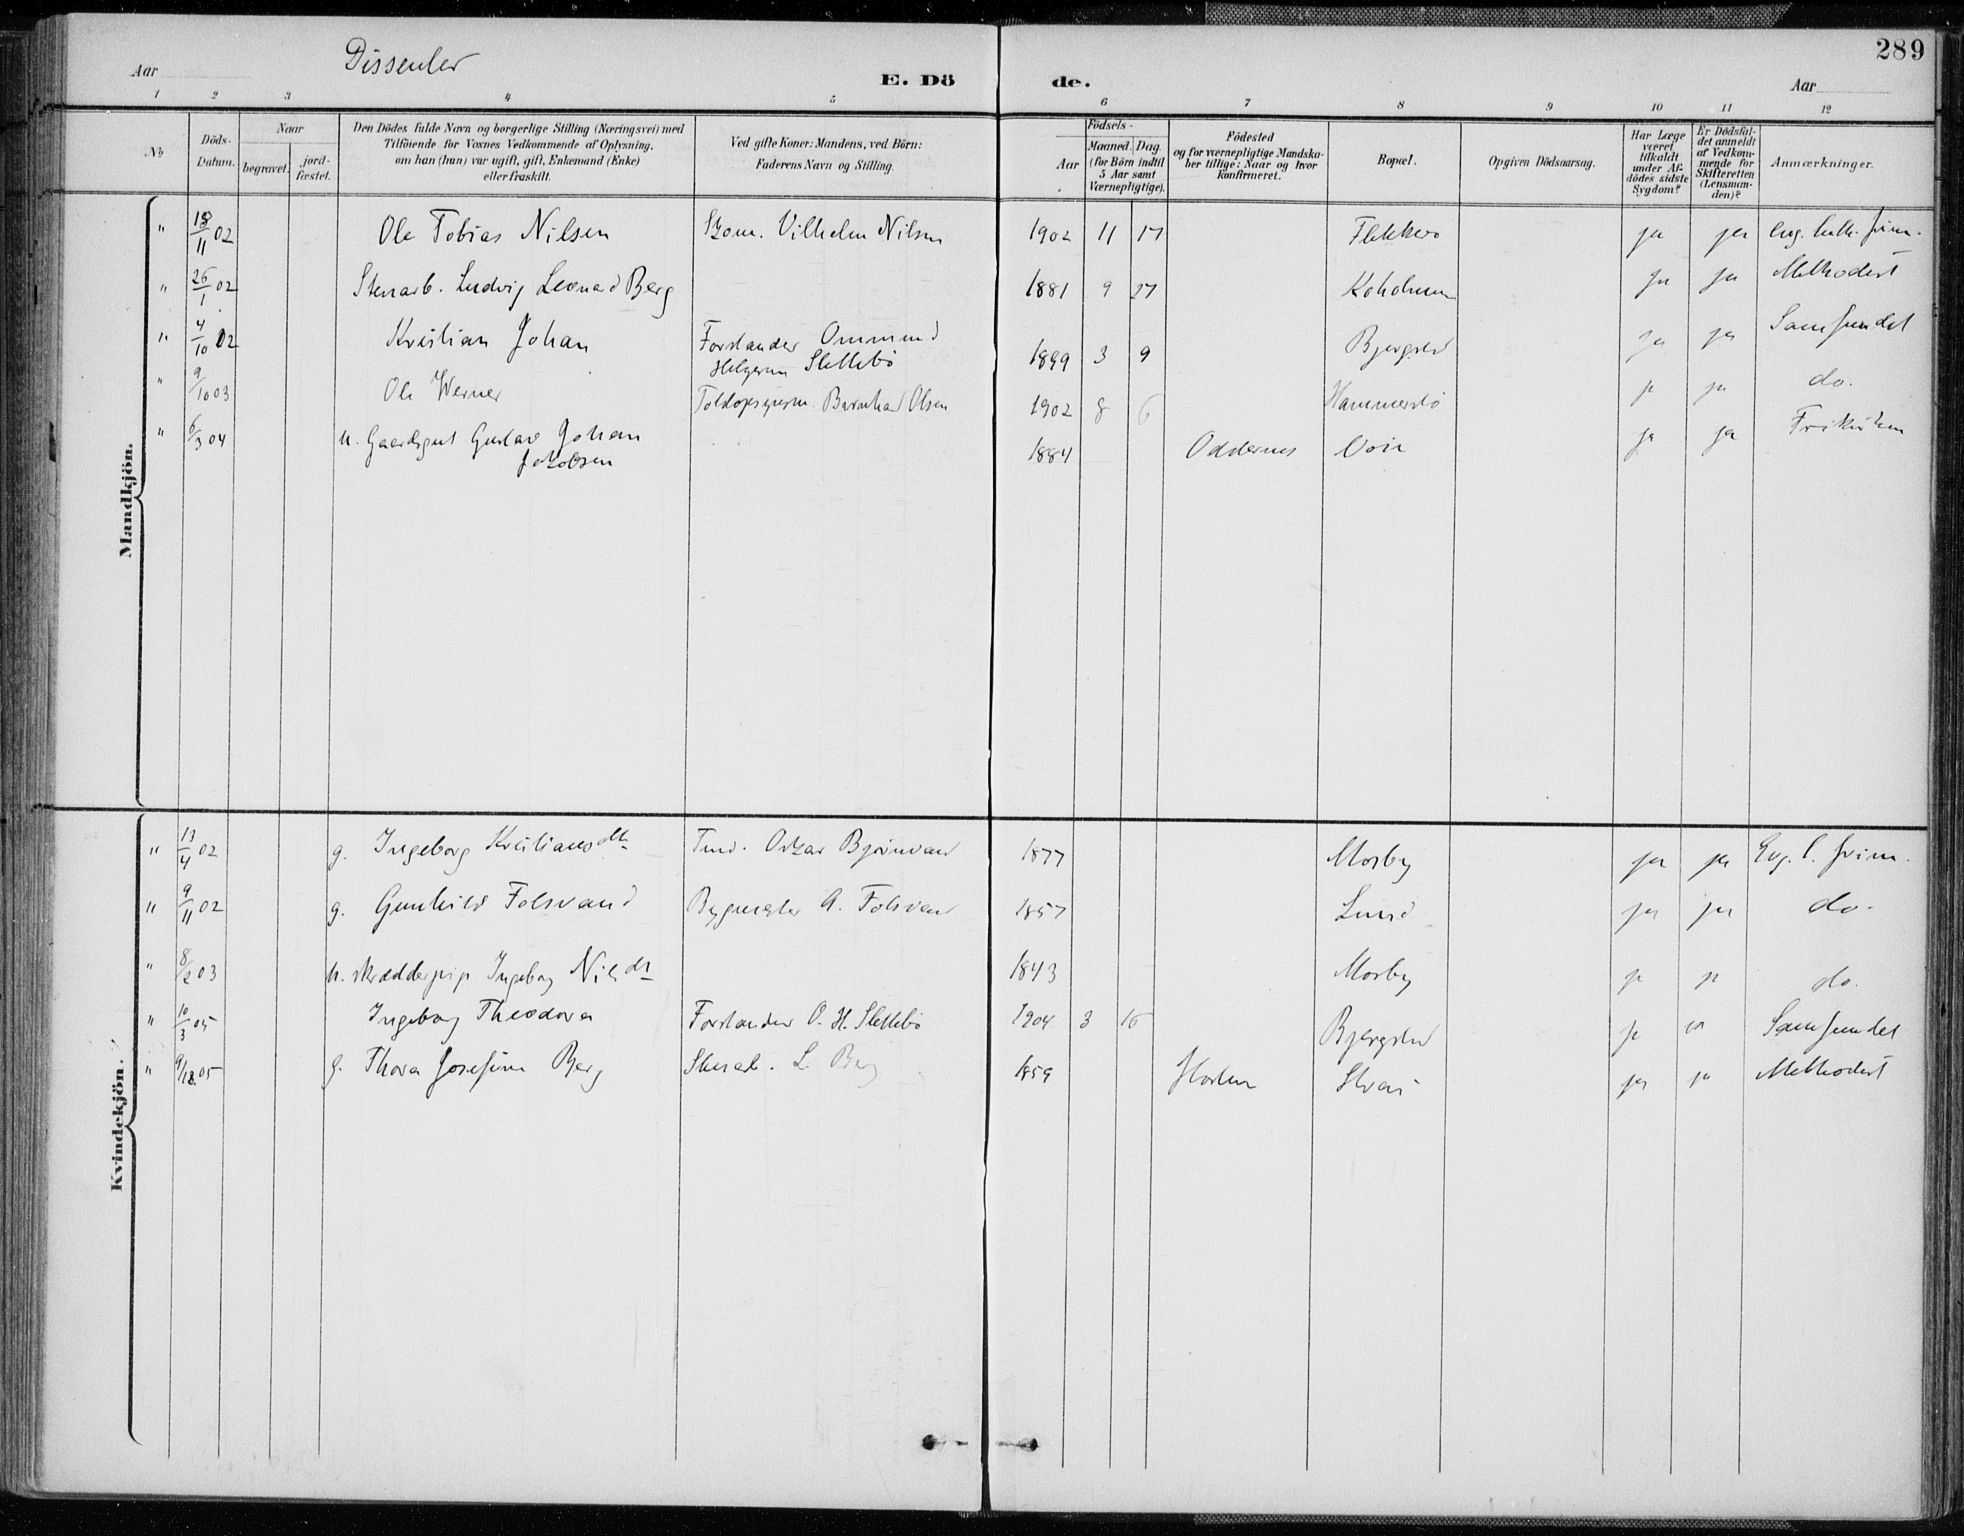 289
Aar
Dissenter
E. Dö de.
Aar
1 2 3 4 5 6 7 8 9 10 11 12
No
Döds-Datum.
Naar
begravet.
jord-fæstet.
Den Dödes fulde Navn og borgerlige Stilling (Næringsvei) med
Tilföiende for Voxnes Vedkommende af Oplysning,
om han (hun) var ugift, gift, Enkemand (Enke)
eller fraskilt.
Ved gifte Koner: Mandens, ved Börn:
Faderens Navn og Stilling.
Födsels-
Aar
Maaned. Dag.
(for Börn indtil
5 Aar samt
Værnepligtige).
Födested
og for værnepligtige Mandska-
ber tillige: Naar og hvor
konfirmeret.
Bopæl.
Opgiven Dödsaarsag.
Har Læge
været
tilkaldt
under Af-
dödes sidste
Sygdom?
Er Dödsfal-
det anmeldt
af Vedkom-
mende for
Skifteretten
(Lensman-
den)?
Anmærkninger.
Mandkjön.
" 18/11 02 Ole Tobias Nilsen Vilhelm Nilsen 1902 11 17 Flekkerø ja ja
" 26/1 02 Stenarb. Ludvig Leonard Berg 1881 9 27 ja ja Methodist
" 4/10 02 Kristian Johan Forstander Ommund 1899 3 9 Bjergsted ja ja Samfundet
Slettebö
" 9/10 03 Ole Werner Toldopsynsm. Olsen 1902 8 6 ja ja do.
" 6/3 04 u. Gaardsgut Gustav Johan 1884 Oddernes ja ja
Jakobsen
Kvindekjön.
" 13/4 02 g. Ingeborg Kristiansdtr Bjørnvand 1877 Mosby ja ja
" 9/11 02 g. Gunhild Folsvand Bygmester A. Folsvand 1857 Lund ja ja do.
" 8/2 03 u. Ingeborg Nilsdtr 1843 Mosby ja ja do.
" 10/3 05 Ingeborg Theodora Forstander O. H. Slettebö 1904 3 Bjergsted ja ja Samfundet
" 9/12 05 g. Thora Josefine Berg Stenarb. L. Berg 1859 Horten ja ja Methodist